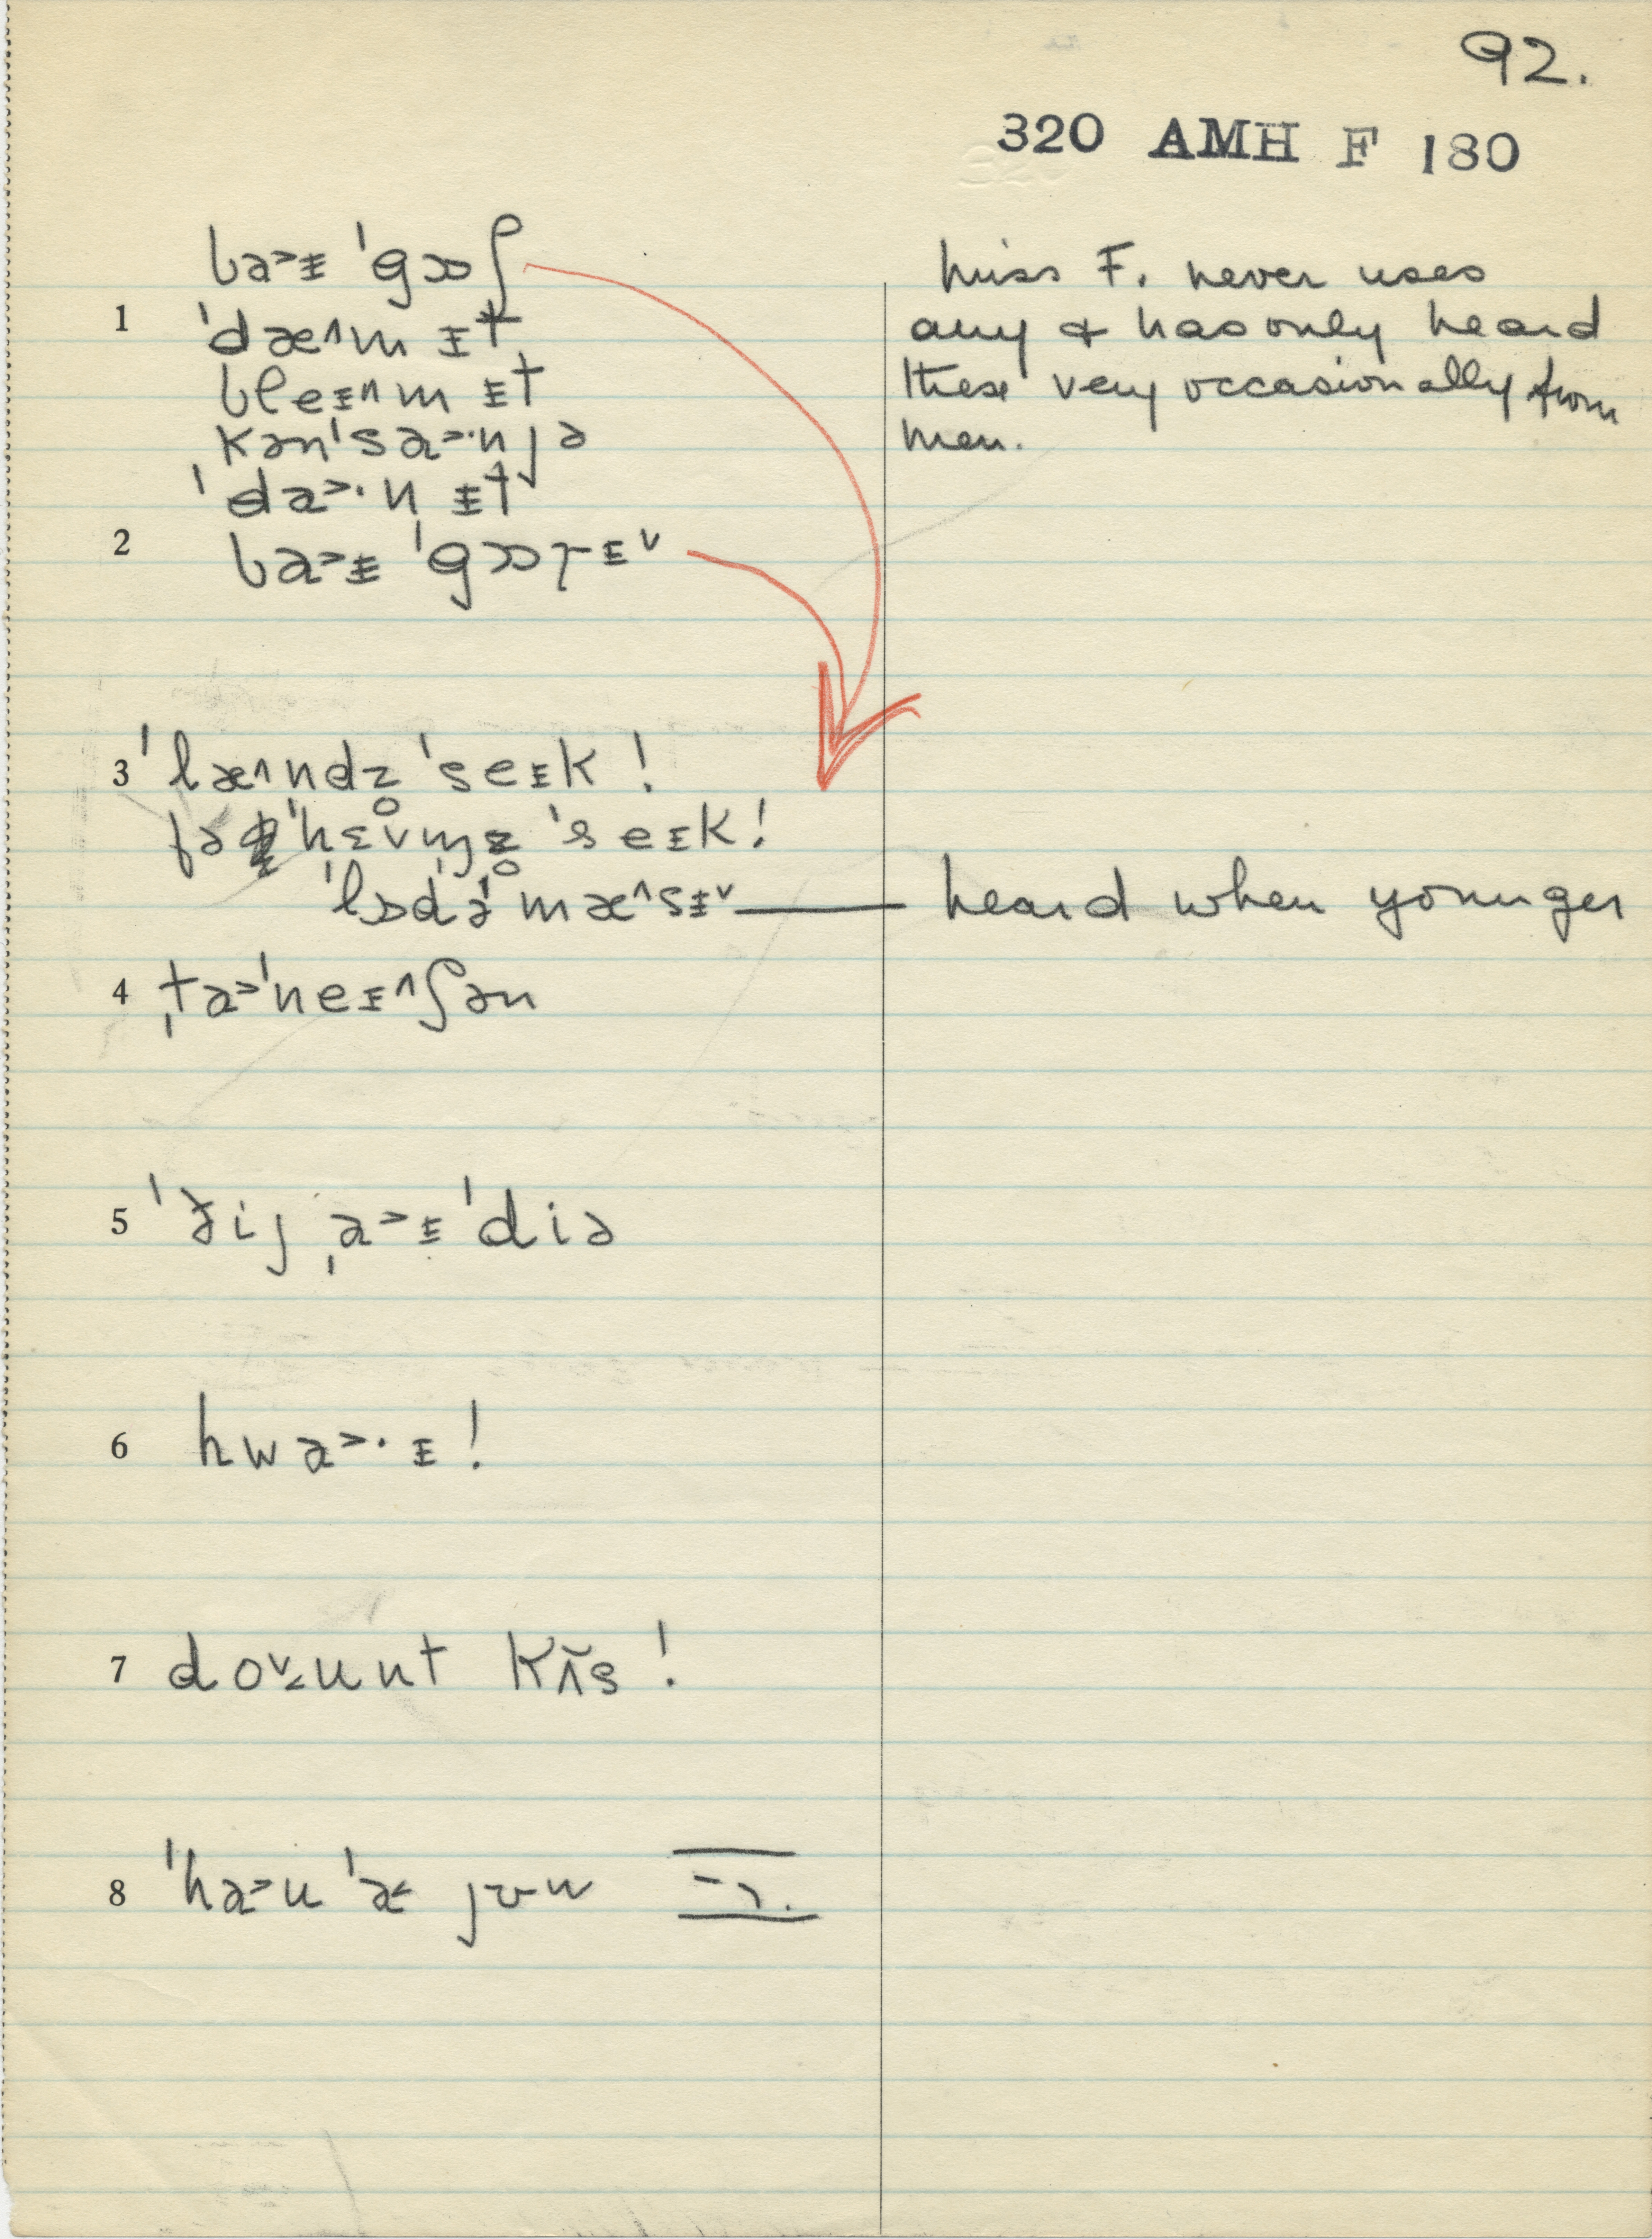 92.
320 AMH F 180
ba˃ᵻ ˈgɒʃ
1 ˈdæ˄m ᵻt
bleᵻ˄m ᵻt
kənˈsa˃·n jə
ˈda˃·n ᵻt
2 ba˃ᵻ ˈgɒɪᵻ˅
Miss F. never uses
any & has only heard
these very occasionally from
men.
3 ˈlæ˄ndz̥ ˈseᵻk!
fə ˈhɛ˅m̩z̥ ˈseᵻk!
ˈlɔdˈə ˈmæ˄sᵻ˅ — heard when younger
4 ˌta˃ˈneᵻ˄ʃən
5 ˈðij ˌa˃ᵻˈdiə
6 hwa˃·ᵻ!
7 do˅˂unt kʌ̃s!
8 ˈha˃u ˈa˂ jʊw